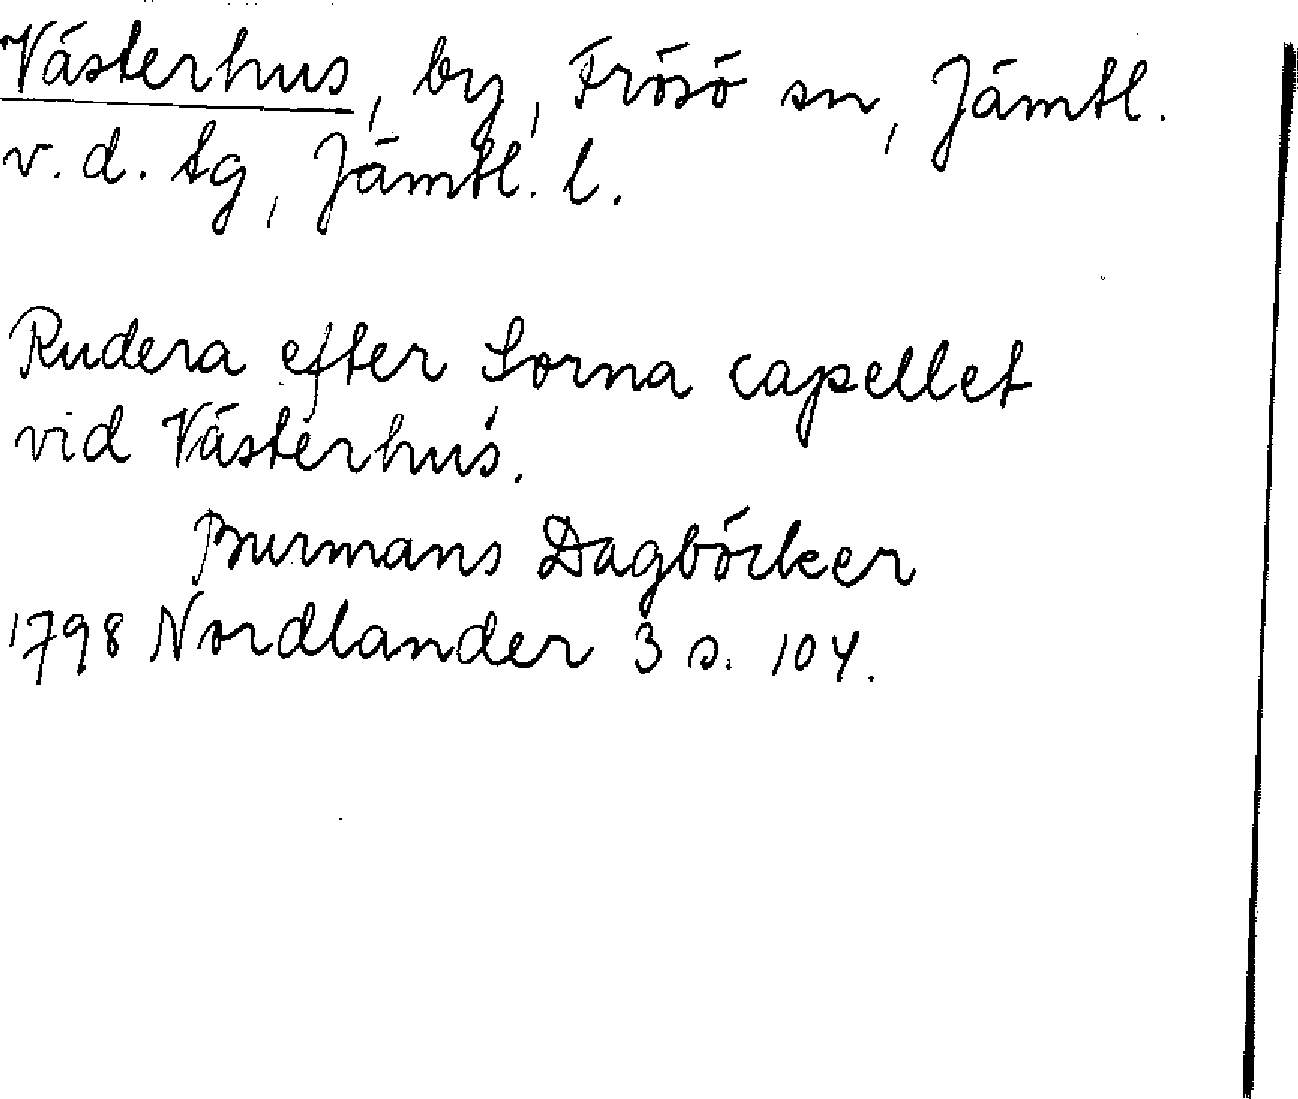 Västerhus, by, Frösö sn, Jämtl.
v. d. tg, Jämtl. l.
Rudera efter Sorna capellet
vid Västerhus.
Burmans Dagböcker
1798 Nordlander 3 s. 104.